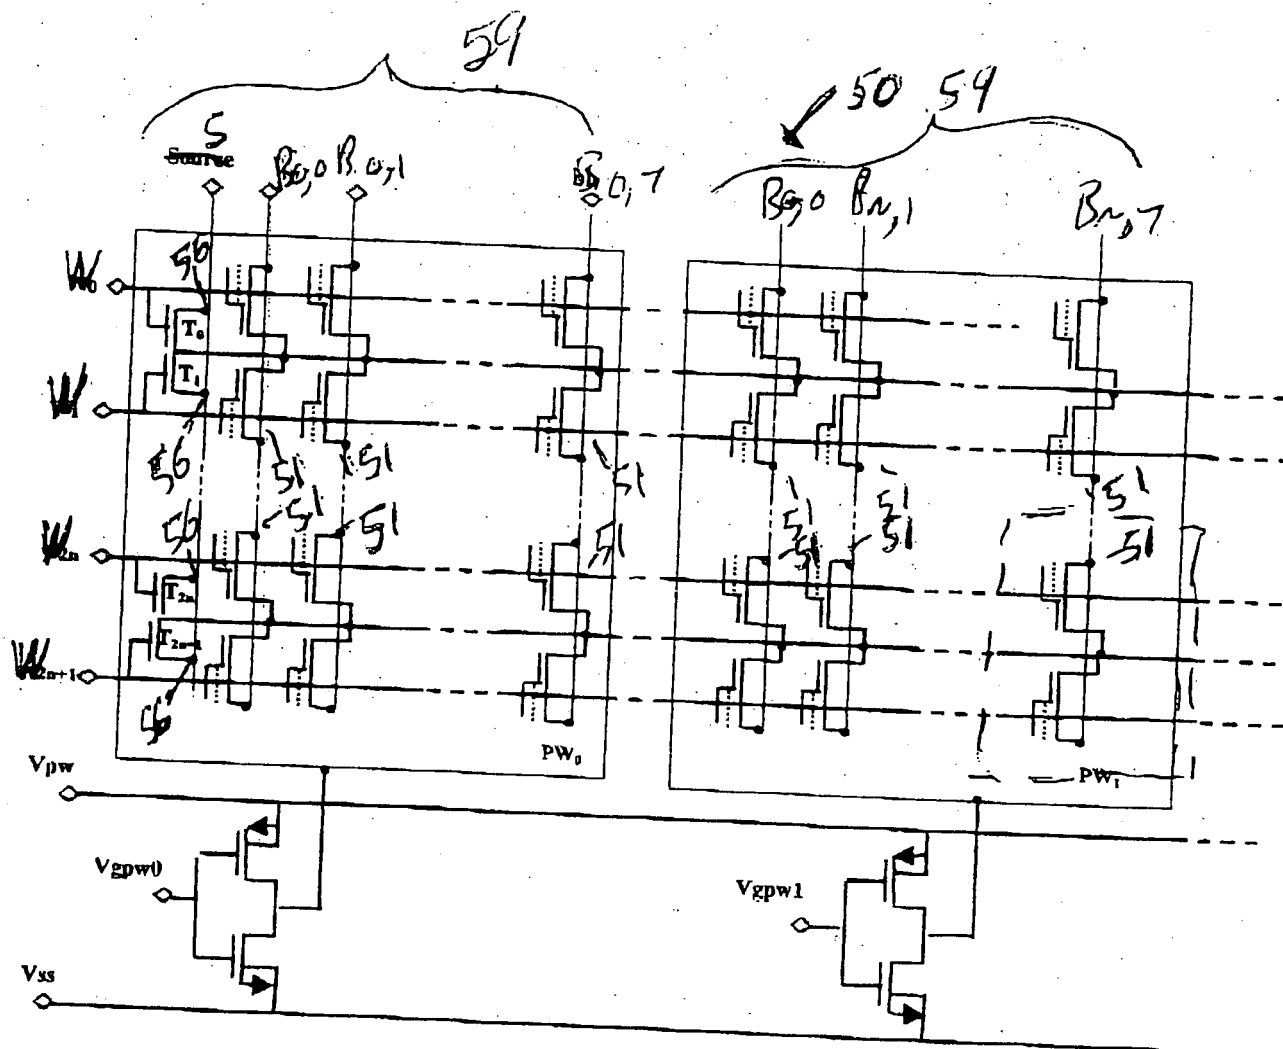 59
50 59
S
Source
B0,0 B0,1 0,7
B0,0 Bn,1 Bn,7
W0
56
T0
T1
W1
56
51 51 51
51 51 51
56
51 51 51
51 51 51
W2n
T2n
T2n+1
W2n+1
56
PW0
PW1
Vpw
Vgpw0
Vgpw1
Vss